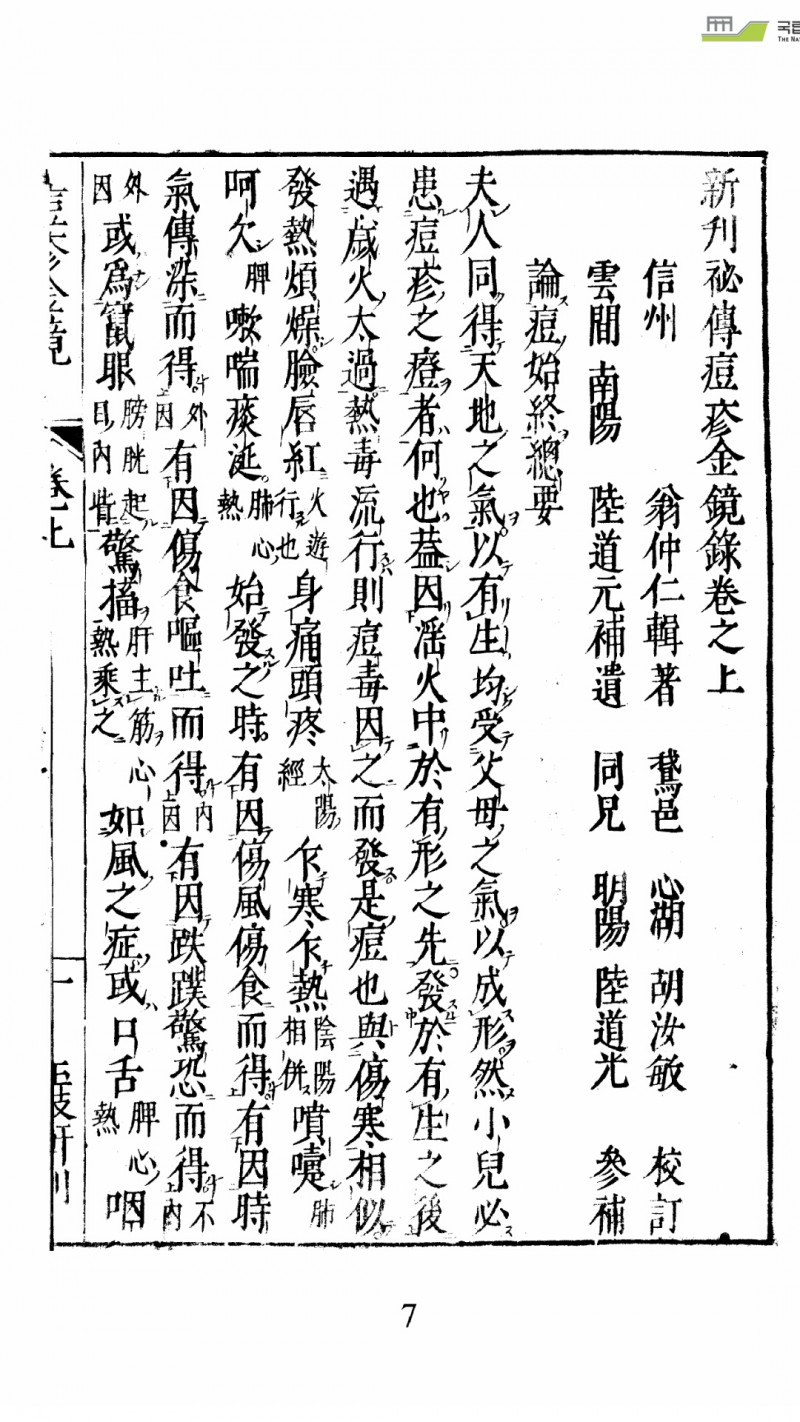 국립
THE NA
新刊祕傳痘疹金鏡錄卷之上
信州 翁仲仁輯著 鵞邑 心湖 胡汝敏 校訂
雲間 南陽 陸道元補遺 同兄 明陽 陸道光 參補
論痘始終總要
夫人同得天地之氣以有生均受父母之氣以成形然小兒必
患痘疹之證者何也葢因滛火中於有形之先發於有生之後
遇歲火太過熱毒流行則痘毒因之而發是痘也與傷寒相似
發熱煩燥臉唇紅火遊行也身痛頭疼太陽經乍寒乍熱陰陽相併噴嚔肺
呵欠脾嗽喘痰涎肺心熱始發之時有因傷風傷食而得有因時
氣傳染而得外因有因傷食嘔吐而得內因有因跌蹼驚恐而得不內
外因或爲竄眼膀胱起目內眥驚搐肝主筋心熱乘之如風之症或口舌脾心熱咽
卷上
一
7